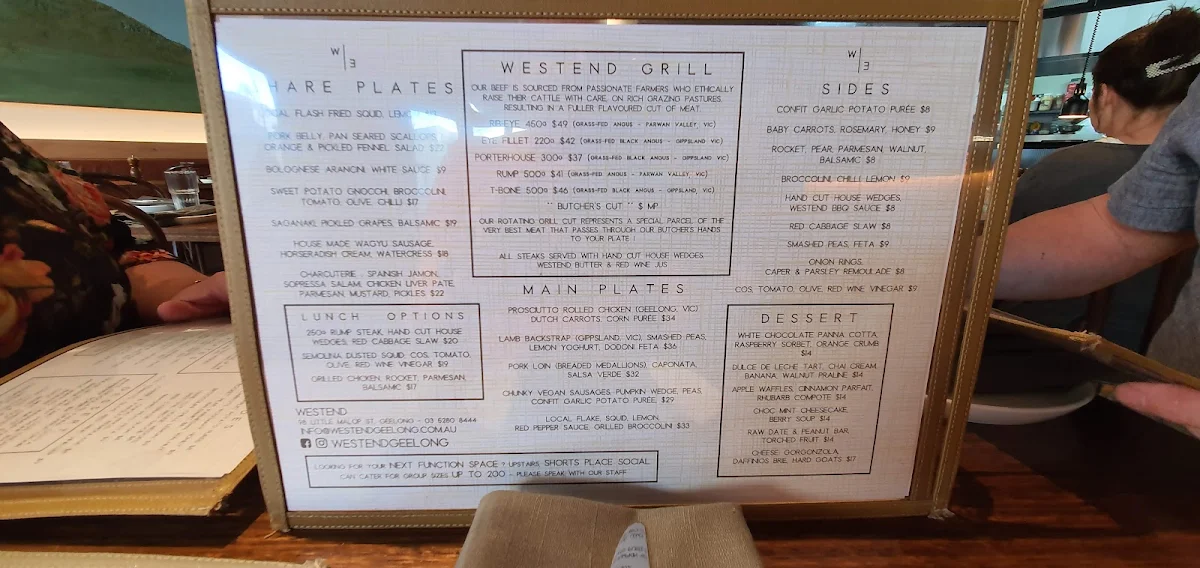 W|E
HARE PLATES
FLASH FRIED SQUID,
PORK BELLY, PAN SEARED SCALLOPS,
ORANGE & PICKLED FENNEL SALAD
BOLOGNESE ARANCINI, WHITE SAUCE $9
SWEET POTATO GNOCCHI, BROCCOLINI,
TOMATO, OLIVE, CHILLI $17
SAGANAKI, PICKLED GRAPES, BALSAMIC $19
HOUSE MADE WAGYU SAUSAGE,
HORSERADISH CREAM, WATERCRESS $18
CHARCUTERIE - SPANISH JAMON,
SOPRESSA SALAMI, CHICKEN LIVER PATE,
PARMESAN, MUSTARD, PICKLES $22
LUNCH OPTIONS
250G RUMP STEAK, HAND CUT HOUSE
WEDGES, RED CABBAGE SLAW $20
SEMOLINA DUSTED SQUID, COS, TOMATO,
OLIVE, RED WINE VINEGAR $19
GRILLED CHICKEN, ROCKET, PARMESAN,
BALSAMIC $17
WESTEND
LITTLE MALOP ST, GEELONG - 03 5280 8444
INFO@WESTENDGEELONG.COM.AU
WESTENDGEELONG
LOOKING FOR YOUR NEXT FUNCTION SPACE ? UPSTAIRS, SHORTS PLACE SOCIAL
CAN CATER FOR GROUP SIZES UP TO 200 - PLEASE SPEAK WITH OUR STAFF
WESTEND GRILL
OUR BEEF IS SOURCED FROM PASSIONATE FARMERS WHO ETHICALLY
RAISE THEIR CATTLE WITH CARE, ON RICH GRAZING PASTURES,
RESULTING IN A FULLER FLAVOURED CUT OF MEAT.
RIB-EYE 450G $49 (GRASS-FED ANGUS - PARWAN VALLEY, VIC)
EYE FILLET 220G $42 (GRASS-FED BLACK ANGUS - GIPPSLAND, VIC)
PORTERHOUSE 300G $37 (GRASS-FED BLACK ANGUS - GIPPSLAND, VIC)
RUMP 500G $41 (GRASS-FED ANGUS - PARWAN VALLEY, VIC)
T-BONE 500G $46 (GRASS-FED BLACK ANGUS - GIPPSLAND, VIC)
" BUTCHER'S CUT " $ MP
OUR ROTATING GRILL CUT REPRESENTS A SPECIAL PARCEL OF THE
VERY BEST MEAT THAT PASSES THROUGH OUR BUTCHER'S HANDS
TO YOUR PLATE !
ALL STEAKS SERVED WITH HAND CUT HOUSE WEDGES,
WESTEND BUTTER & RED WINE JUS
MAIN PLATES
PROSCIUTTO ROLLED CHICKEN (GEELONG, VIC)
DUTCH CARROTS, CORN PURÉE $34
LAMB BACKSTRAP (GIPPSLAND, VIC), SMASHED PEAS,
LEMON YOGHURT, DODONI FETA $36
PORK LOIN (BREADED MEDALLIONS) CAPONATA,
SALSA VERDE $32
CHUNKY VEGAN SAUSAGES, PUMPKIN WEDGE, PEAS,
CONFIT GARLIC POTATO PURÉE, $29
LOCAL FLAKE, SQUID, LEMON,
RED PEPPER SAUCE, GRILLED BROCCOLINI $33
W|E
SIDES
CONFIT GARLIC POTATO PURÉE $8
BABY CARROTS, ROSEMARY, HONEY $9
ROCKET, PEAR, PARMESAN, WALNUT,
BALSAMIC $8
BROCCOLINI, CHILLI, LEMON $9
HAND CUT HOUSE WEDGES,
WESTEND BBQ SAUCE $8
RED CABBAGE SLAW $8
SMASHED PEAS, FETA $9
ONION RINGS,
CAPER & PARSLEY REMOULADE $8
COS, TOMATO, OLIVE, RED WINE VINEGAR $9
DESSERT
WHITE CHOCOLATE PANNA COTTA,
RASPBERRY SORBET, ORANGE CRUMB
$14
DULCE DE LECHE TART, CHAI CREAM,
BANANA, WALNUT PRALINE $14
APPLE WAFFLES, CINNAMON PARFAIT,
RHUBARB COMPOTE $14
CHOC MINT CHEESECAKE,
BERRY SOUP $14
RAW DATE & PEANUT BAR,
TORCHED FRUIT $14
CHEESE: GORGONZOLA,
DAFFINOIS BRIE, HARD GOATS $17